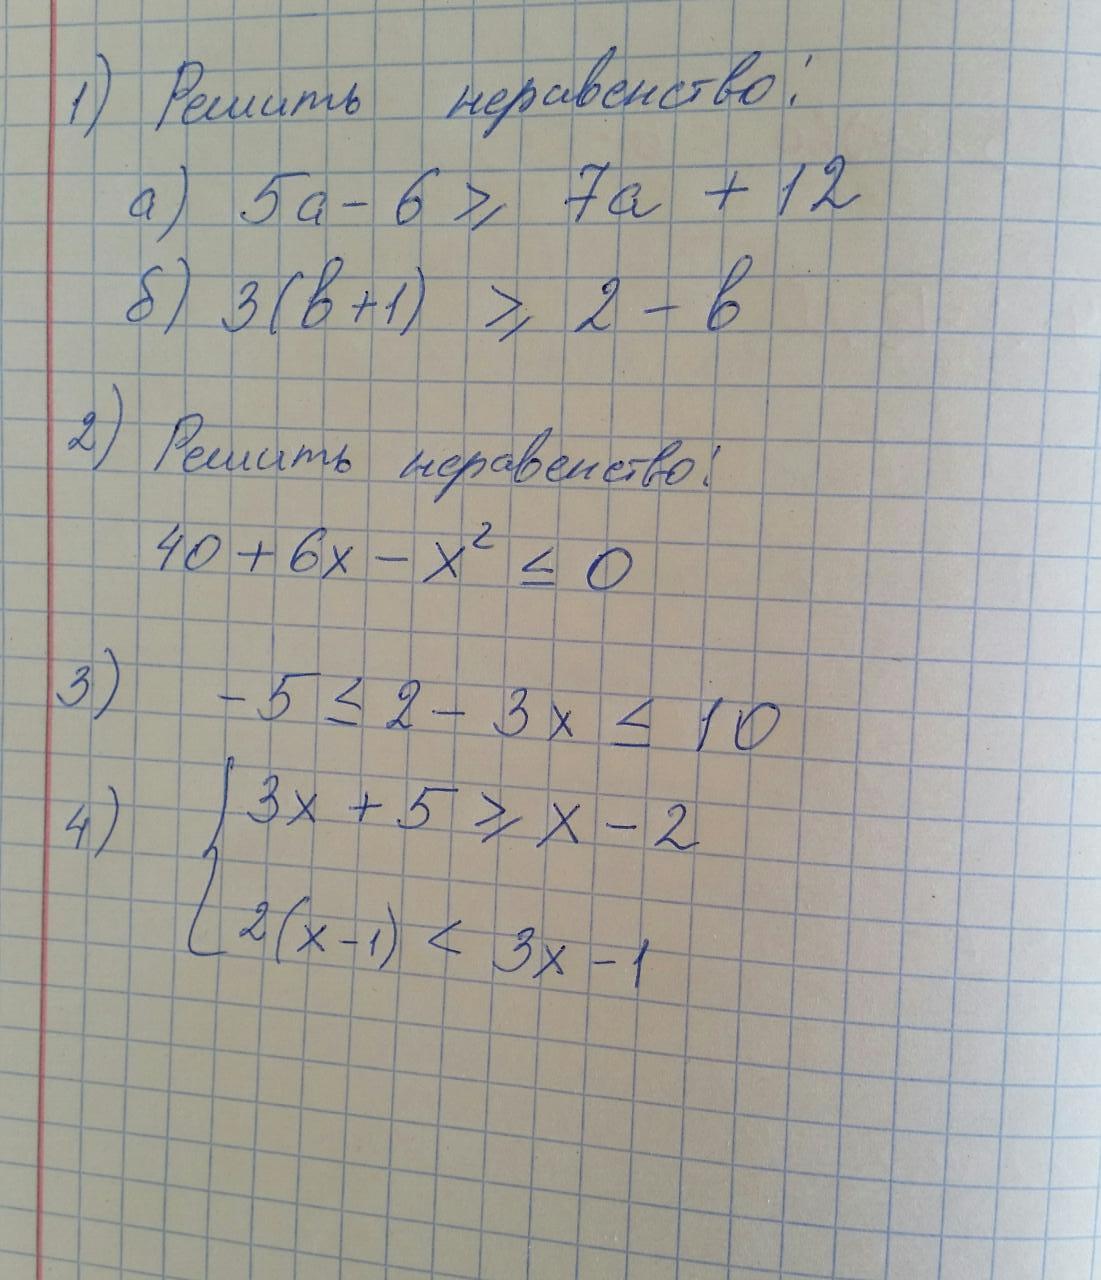 1) Решить неравенство:
а) 5a - 6 ⩾ 7a + 12
б) 3(b+1) ⩾ 2 - b
2) Решить неравенство:
40 + 6x - x² ≤ 0
3) -5 ≤ 2 - 3x ≤ 10
4) { 3x + 5 ⩾ x - 2
2(x-1) < 3x - 1